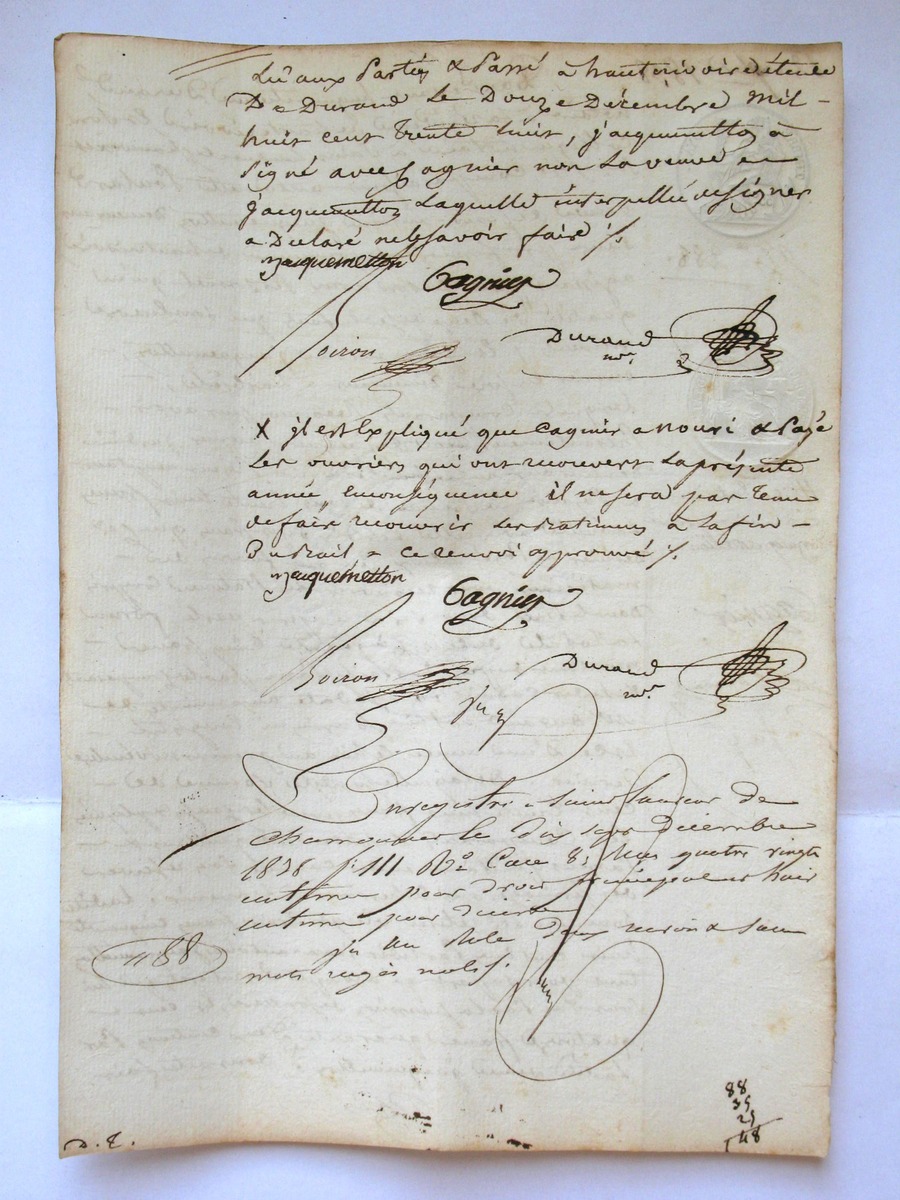 Lu aux Parties & Passé a hauterivoire étude
De Durand Le Douze Décembre mil
huit cent trente huit, jacquemetton à
signé avec Gagnier non La veuve
jacquemetton Laquelle interpellée de signer
a Déclaré ne le savoir faire /.
Jacquemetton
Gagnier
Boiron
Durand
nre.
X jl est Expliqué que Gagnier a nouri & Payé
Les ouvriers qui ont recouvert La présente
année, En conséquence il ne sera pas tenu
de faire recouvrir Les Batimens a La fin
Du Bail = ce renvoi approuvé /.
Jacquemetton
Gagnier
Boiron
Durand
nre.
Enregistré a Saint Laurent de
Chamousset le dix sept décembre
1838 f. 111 Ro. Case 8, Reçu quatre vingts
centimes pour droit principal et huit
centimes pour décime
un Role Deux renvois &
mots rayés nuls.
88
88
35
25
148
D. E.